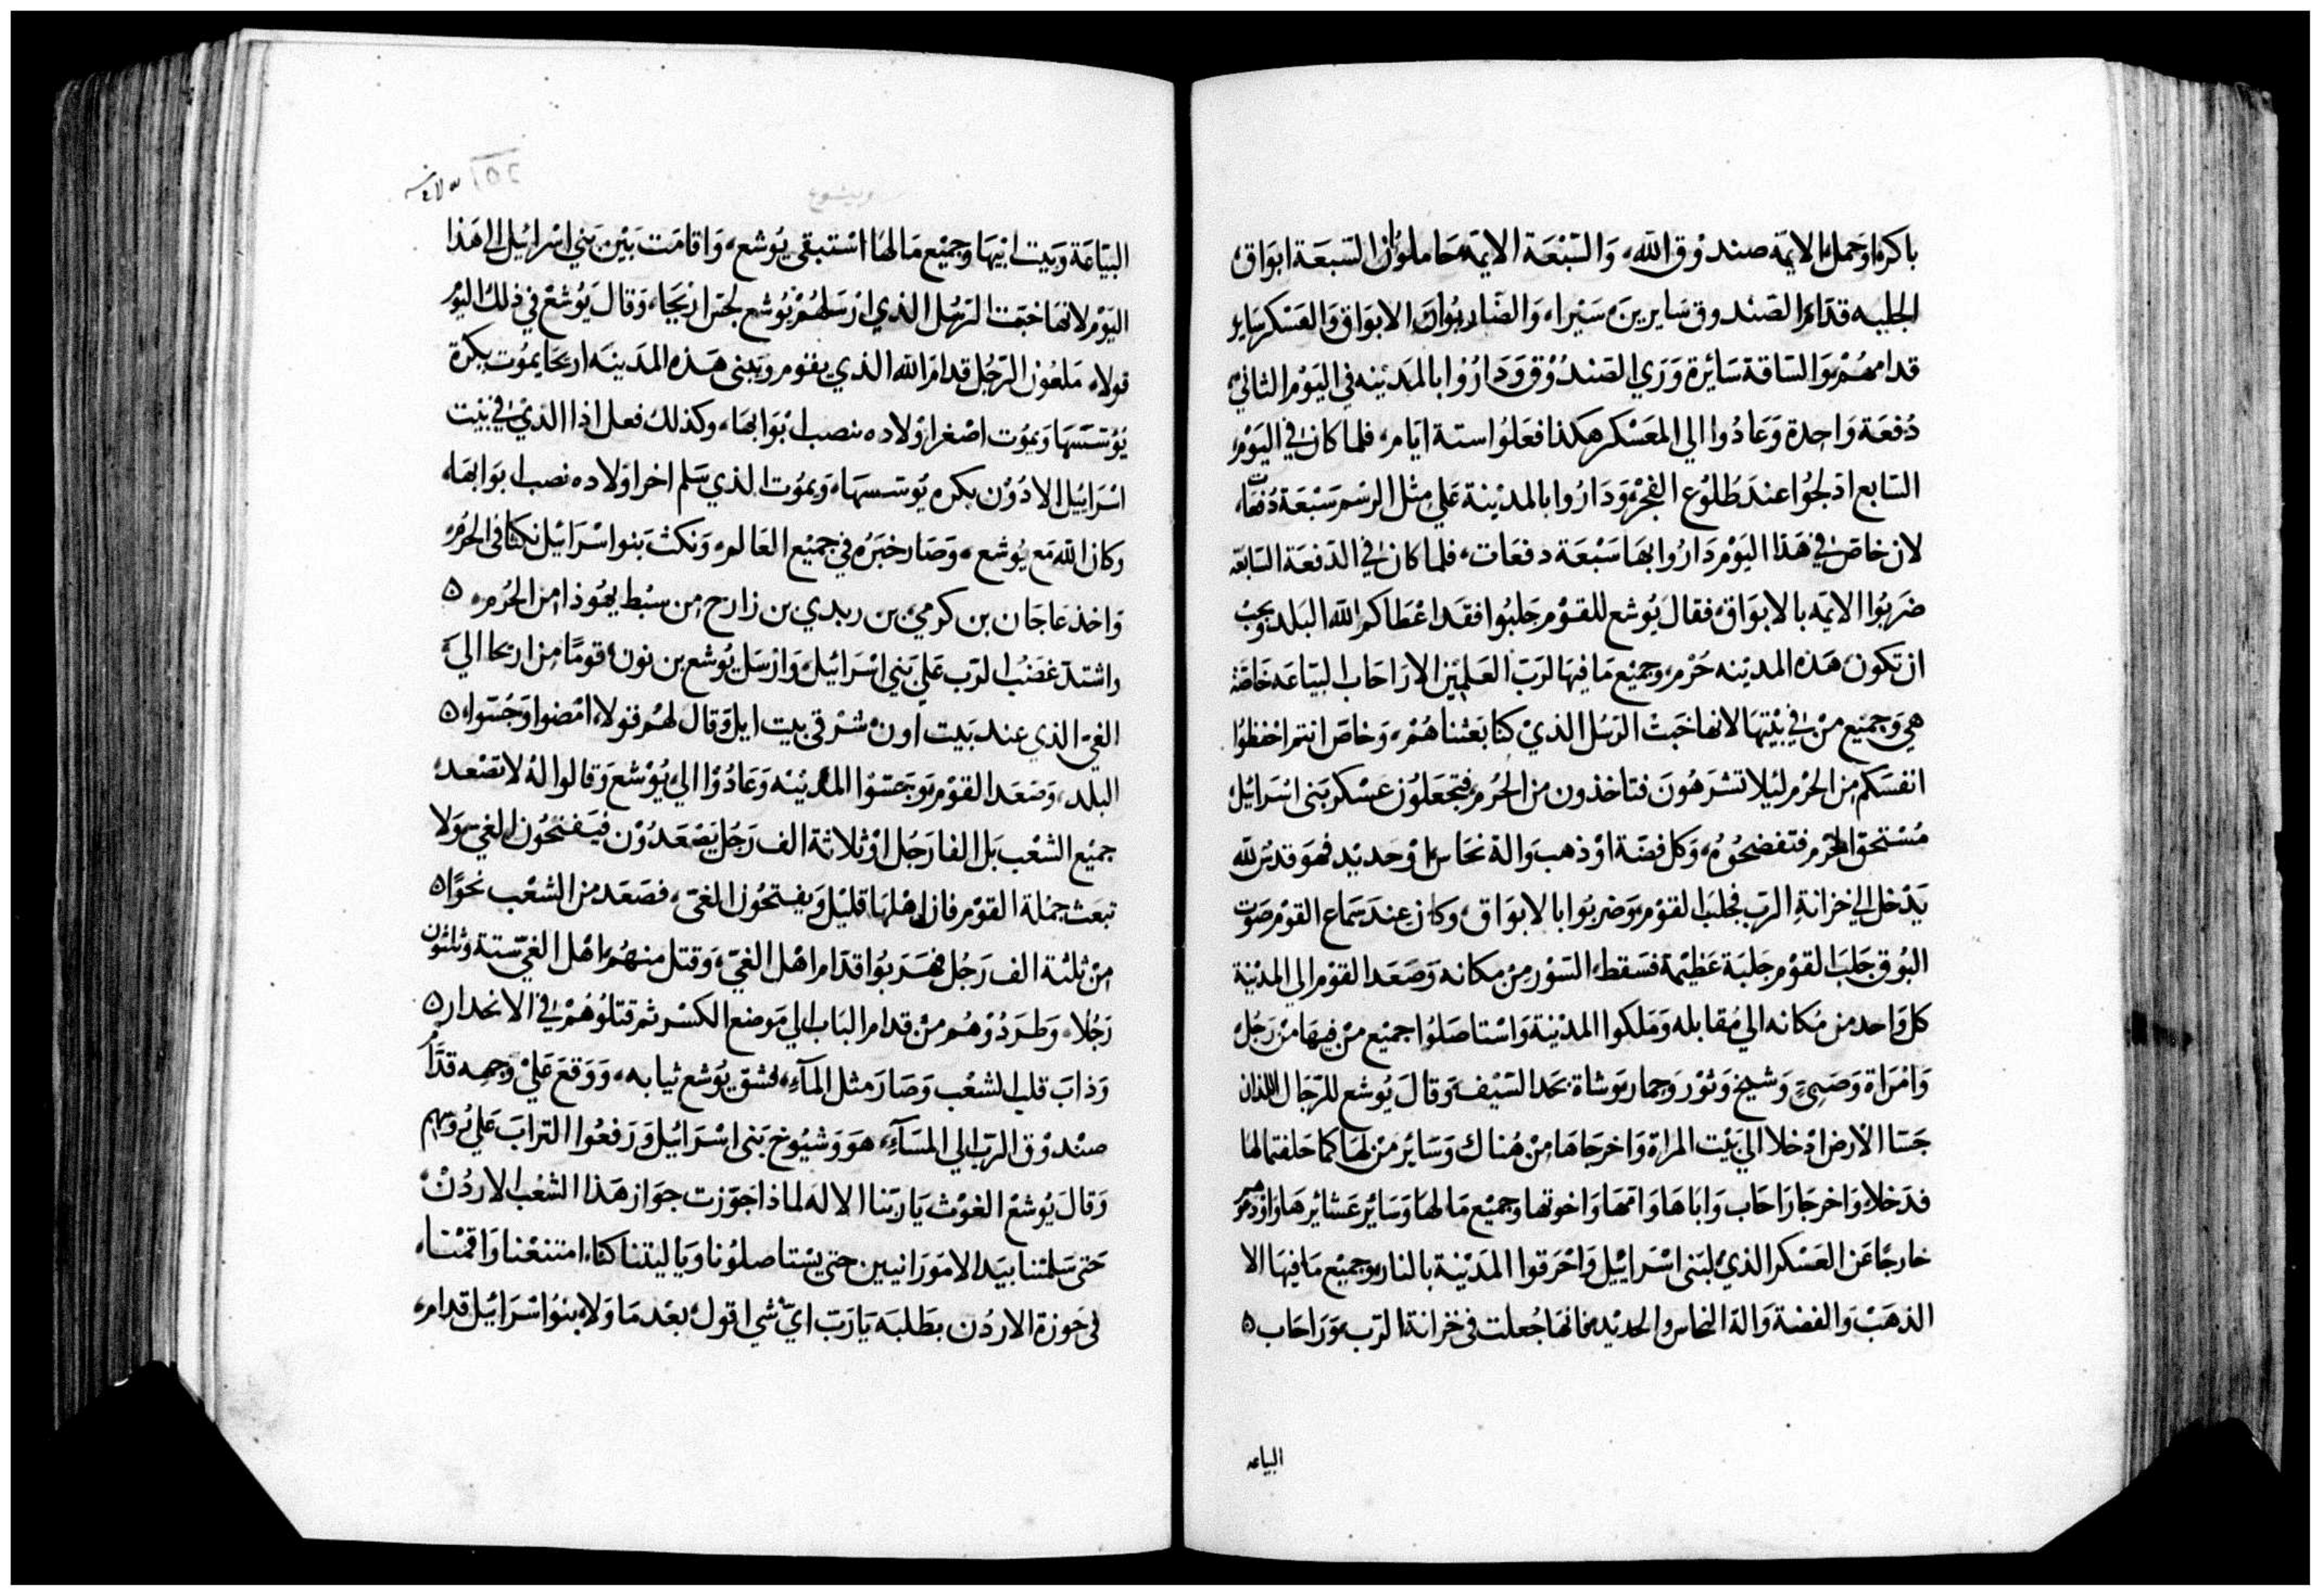 باكرا وحملوا الايمه صندوق الله، والسبعة الايمه حاملوا السبعة ابواق
الجلبه قدام الصندوق سايرين سيرا، والضاربوان الابواق والعسكر ساير
قدامهم والساقة سائرة وري الصندوق وداروا بالمدينه في اليوم الثاني
دفعة واحدة وعادوا الي المعسكر هكذا فعلوا ستة ايام، فلما كان في اليوم
السابع ادلجوا عند طلوع الفجر وداروا بالمدينة علي مثل الرسم سبعة دفعات
لان خاص في هذا اليوم داروا بها سبعة دفعات، فلما كان في الدفعة السابعه
ضربوا الايمه بالابواق، فقال يوشع للقوم جلبوا فقد اعطاكم الله البلد، ويجب
ان تكون هذه المدينه حرم، وجميع ما فيها لرب العلمين الا راحاب البياعه خاصة
هي وجميع من في بيتها لانها خبت الرسل الذي كنا بعثناهم، وخاص انتم احفظوا
انفسكم من الحرم ليلا تشرهون فتاخذون من الحرم فتجعلون عسكر بني اسرائيل
مستحق الحرم فتفضحوه، وكل فضة او ذهب والة نحاس او حديد فهو قدس لله
يدخل الي خزانة الرب فجلب القوم وضربوا بالابواق، وكان عند سماع القوم صوت
البوق جلب القوم جلبة عظيمة فسقط السور من مكانه وصعد القوم الي المدينة
كل واحد من مكانه الي مقابله وملكوا المدينة واستاصلوا جميع من فيها من رجل
وامراة وصبي وشيخ وثور وحمار وشاة بحد السيف وقال يوشع للرجال اللذان
جسا الارض ادخلا الي بيت المراة واخرجاها من هناك وساير من لها كما حلفتما لها
فدخلا واخرجا راحاب واباها وامها واخوتها وجميع ما لها وسائر عشائرها واودعوهم
خارجا عن العسكر الذي لبني اسراييل واحرقوا المدينة بالنار وجميع ما فيها الا
الذهب والفضة والة النحاس والحديد فانها جعلت في خزانة الرب، وراحاب ۵
البياعه
٢٥١
ويشوع
البياعة وبيت ابيها وجميع ما لها استبقي يوشع، واقامت بين بني اسرائيل الي هذا
اليوم لانها خبت الرسل الذي ارسلهم يوشع لجس اريحا، وقال يوشع في ذلك اليوم
قولا، ملعون الرجل قدام الله الذي يقوم ويبني هذه المدينه اريحا يموت بكرة
يوسسها ويموت اصغر اولاده نصب ابوابها، وكذلك فعل اذا الذي في بيت
اسراييل الادون بكره يوسسها، ويموت الذي سلم اخر اولاده نصب ابوابها،
وكان الله مع يوشع، وصار خبره في جميع العالم، ونكث بنوا اسرائيل نكثا في الحرم،
واخذ عاجان بن كرمي بن ربدي بن زارح من سبط يهوذا من الحرم ۵
واشتد غضب الرب علي بني اسرائيل، وارسل يوشع بن نون قوما من اريحا الي
الغي الذي عند بيت اون شرقي بيت ايل وقال لهم قولا، امضوا وجسوا ۵
البلد، وصعد القوم وجسوا المدينه وعادوا الي يوشع وقالوا له لا تصعد
جميع الشعب بل الفا رجل او ثلاثة الف رجل يصعدون فيفتحون الغي ولا
تبعث جملة القوم فان اهلها قليل ويفتحون الغي، فصعد من الشعب نحوا ۵
من ثلثة الف رجل فهربوا قدام اهل الغي، وقتل منهم اهل الغي ستة وثلثون
رجلا، وطردوهم من قدام الباب الي موضع الكسر ثم قتلوهم في الانحدار ۵
وذاب قلب الشعب وصار مثل المآء، فشق يوشع ثيابه، ووقع علي وجهه قدام
صندوق الرب الي المسآء، هو وشيوخ بني اسرائيل ورفعوا التراب علي رؤسهم
وقال يوشع الغوث يا ربنا الاله لماذا جوزت جواز هذا الشعب الاردن
حتي سلمتنا بيد الامورانيين حتي يستاصلونا ويا ليتنا كنا، امتنعنا واقمنا،
في حوزة الاردن بطلبه يا رب اي شي اقول، بعد ما ولا بنوا اسرائيل قدام،